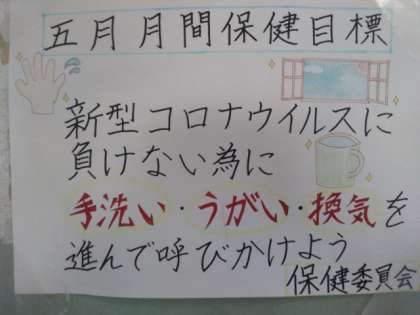 五月月間保健目標
新型コロナウイルスに
負けない為に
手洗い・うがい・換気を
進んで呼びかけよう
保健委員会